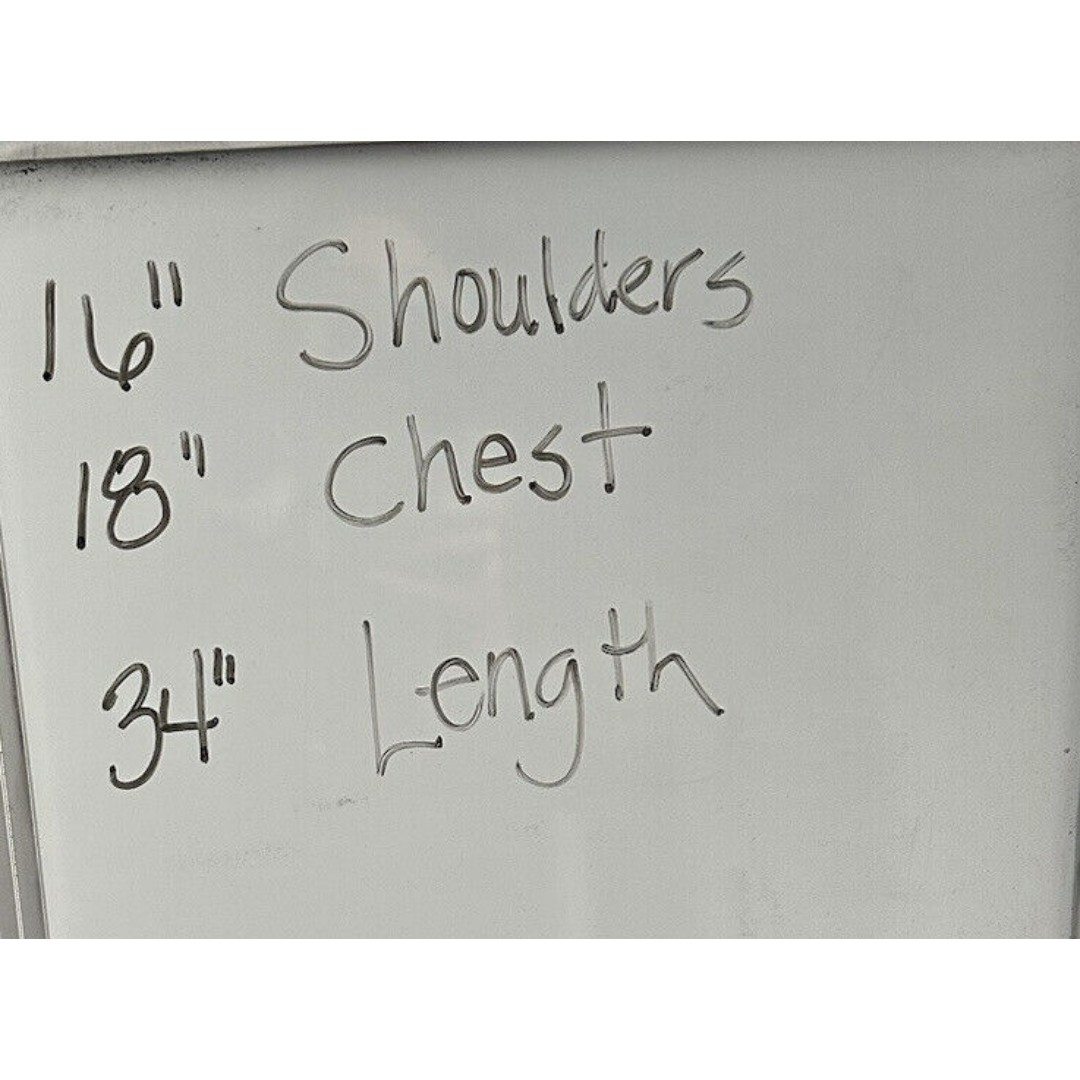 16" Shoulders
18" Chest
34" Length